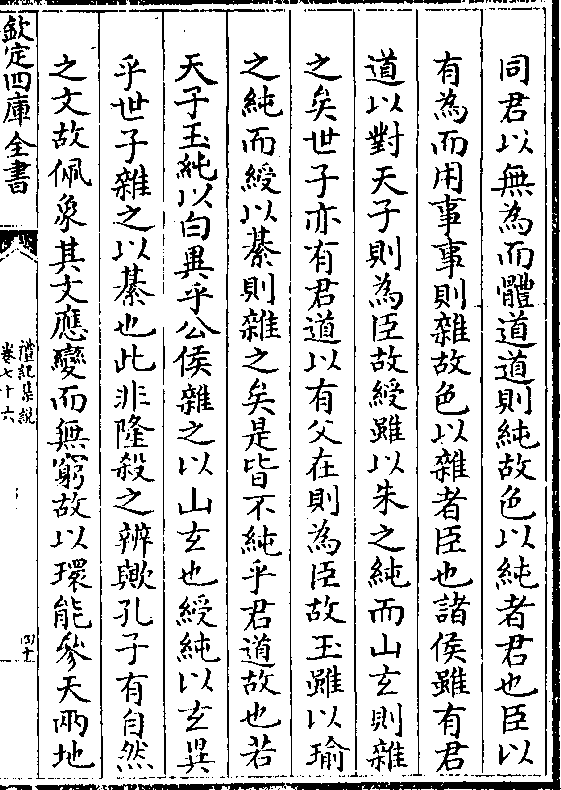 同君以無為而體道道則純故色以純者君也臣以
有為而用事事則雜故色以雜者臣也諸侯雖有君
道以對天子則為臣故綬雖以朱之純而山玄則雜
之矣世子亦有君道以有父在則為臣故玉雖以瑜
之純而綬以綦則雜之矣是皆不純乎君道故也若
天子玉純以白異乎公侯雜之以山玄也綬純以玄異
乎世子雜之以綦也此非隆殺之辨歟孔子有自然
之文故佩象其文應變而無窮故以環能參天兩地
欽定四庫全書
禮記集說
卷七十六
四十